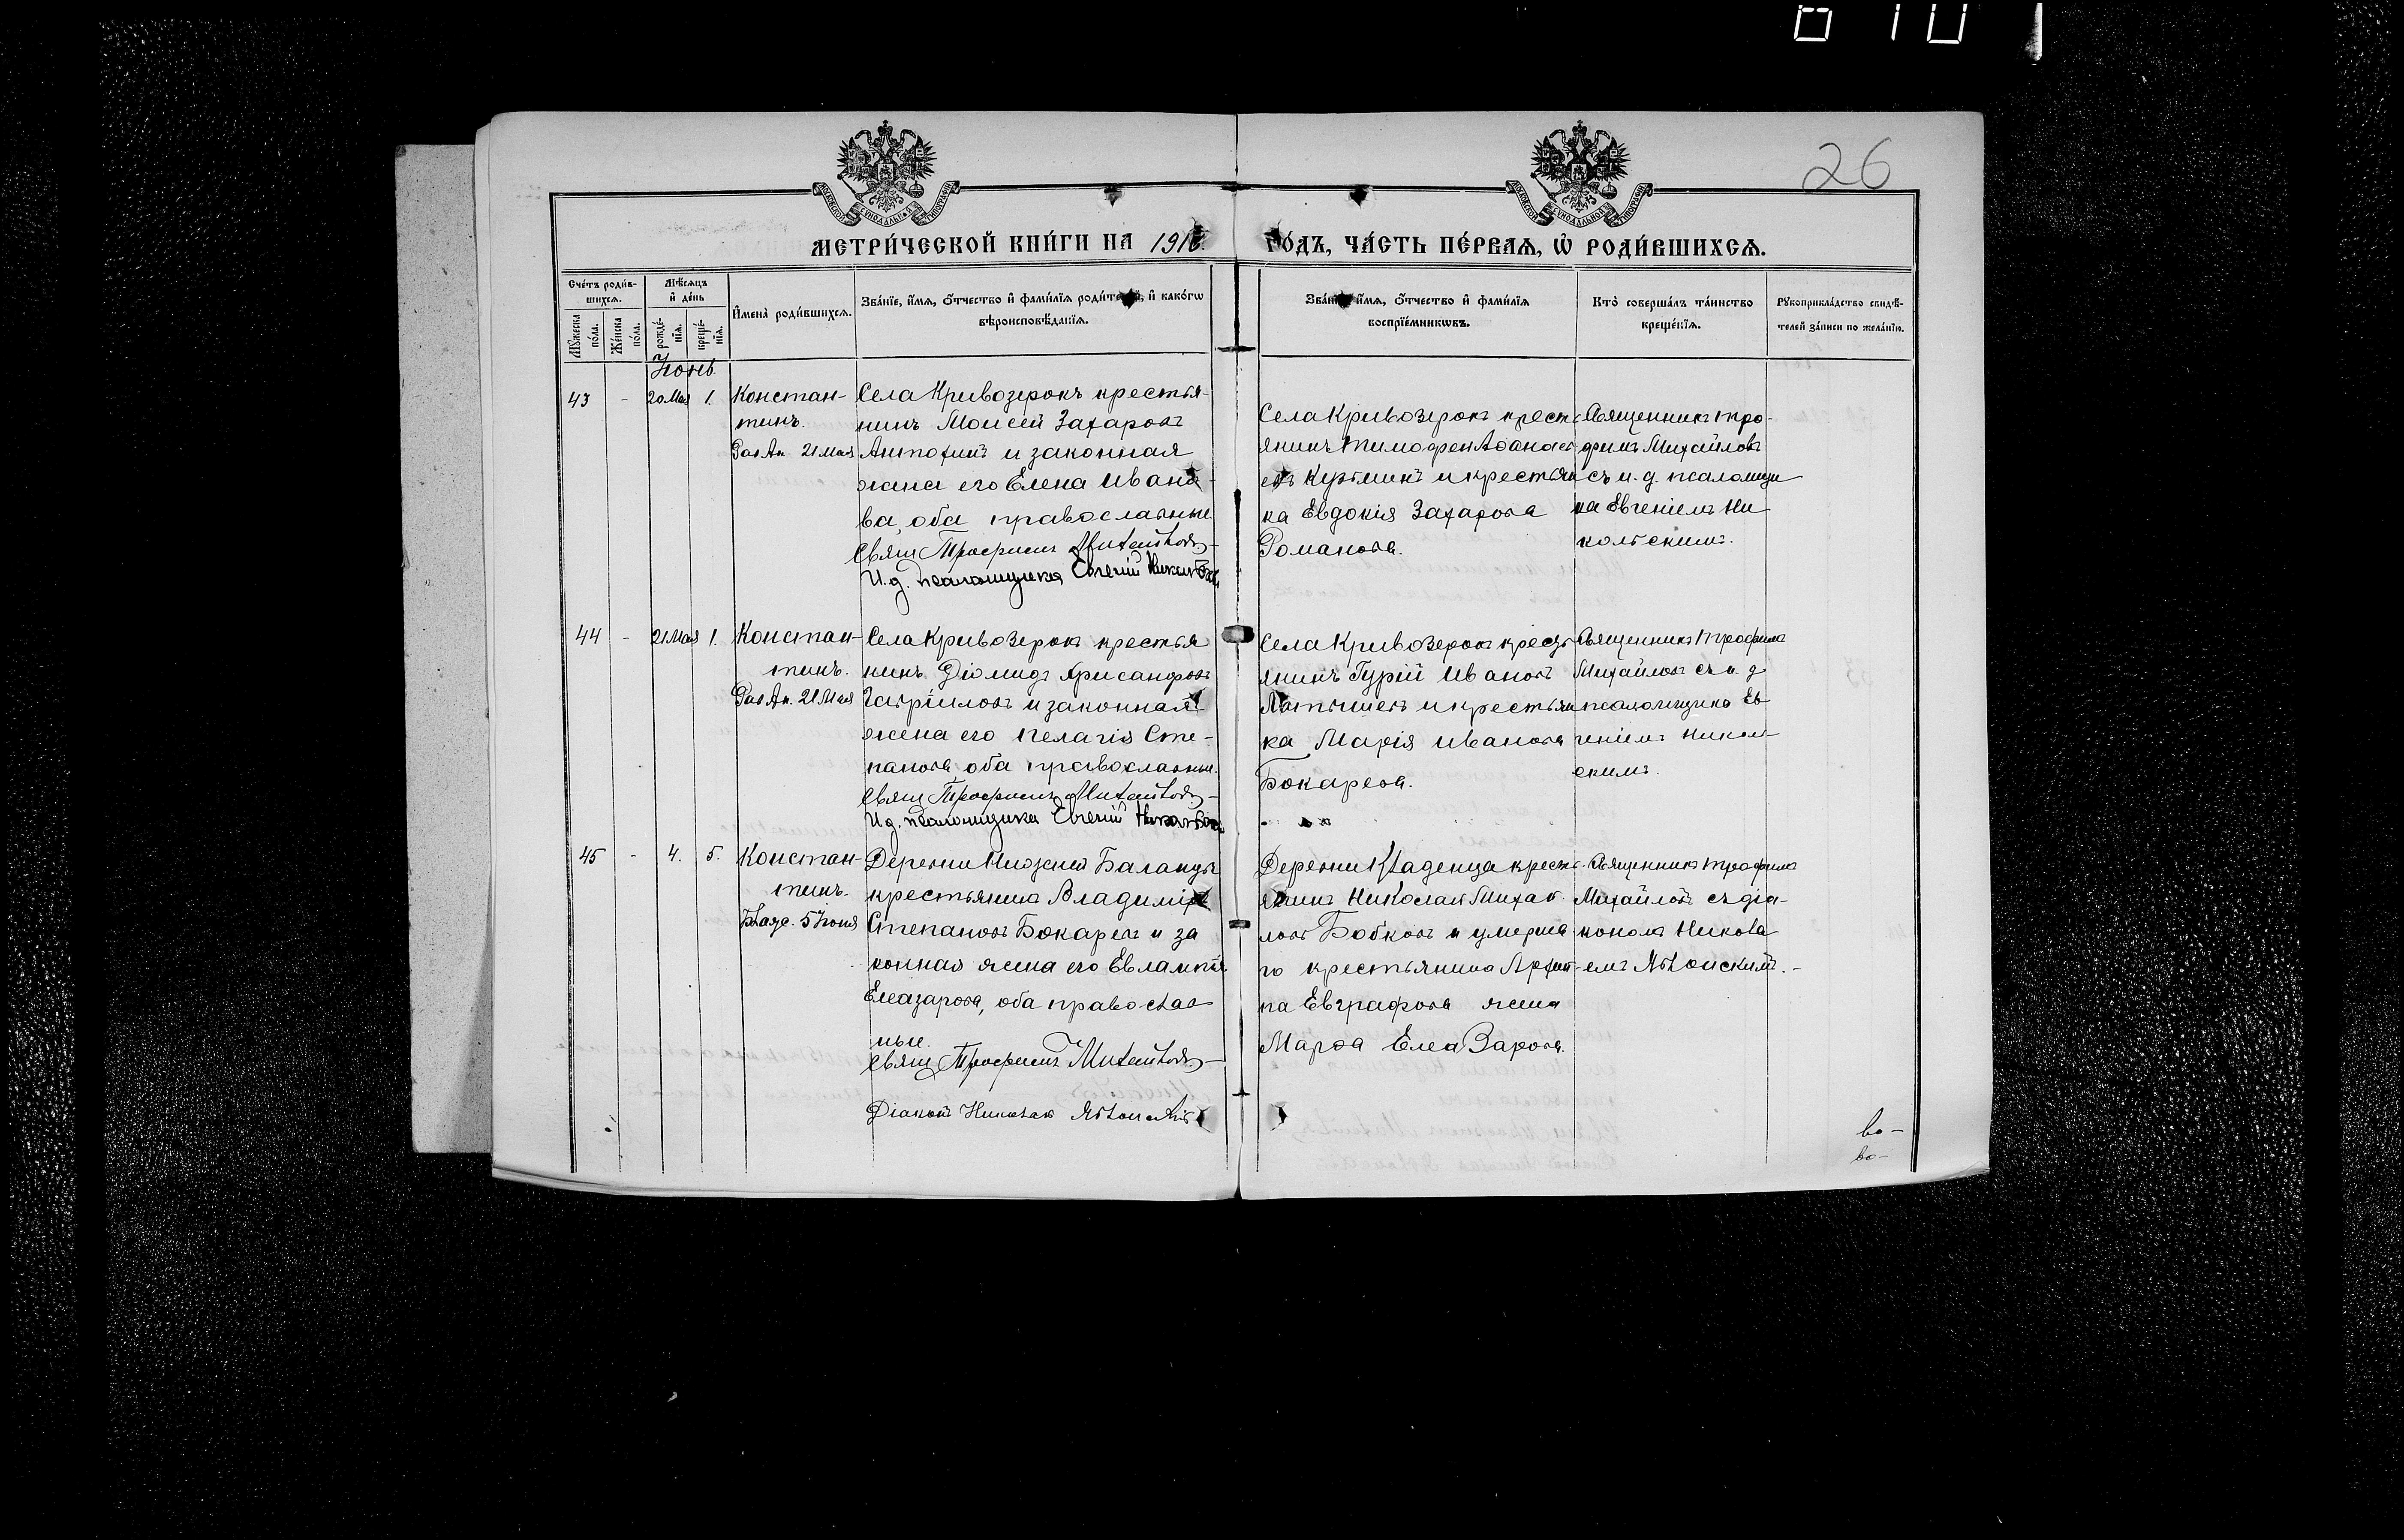 26
МЕТРИ́ЧЕСКОЙ КНИ́ГИ НА 1916. ГО́ДЪ, ЧА́СТЬ ПЕ́РВАЯ, Ѽ РОДИ́ВШИХСЯ.
Сче́тъ роди́в-
шихся.
Мѣ́сяцъ
и҆ де́нь
Мꙋ́жеска по́ла.
Же́нска по́ла.
рожде́-
нїѧ.
креще́-
нїѧ.
И҆мена̀ роди́вшихся.
Зва́нїе, и҆́мя, ѻ҆́тчество и҆ фами́лїя роди́телей, и҆ како́гѡ
вѣроисповѣ́данїя.
Зва́нїе, и҆́мя, ѻ҆́тчество и҆ фами́лїя
воспрїе́мникѡвъ.
Кто̀ соверша́лъ та́инство
креще́нїя.
Рꙋкоприкла́дство свидѣ́-
телей за́писи по жела́нїю.
Іюнь.
43 - 20 Мая 1.
Констан-
тинъ.
21 мая
Села Кривозерокъ крестья-
нинъ Моисей Захаровъ
Антохинъ и законная
жена его Елена Ивано-
ва, оба православные.
Свящ Трофимъ Михайловъ
И.д. псаломщика Евгеній
Села Кривозерокъ кресть
янинъ Тимофей Афанась
евъ Кузьминъ и крестьян
ка Евдокія Захарова
Романова.
Священникъ Тро-
фимъ Михайловъ
съ и. д. псаломщи
ка Евгеніемъ Ни-
кольскимъ.
44 - 21 Мая 1.
Констан-
тинъ.
21 Мая
Села Кривозерокъ крестья
нинъ Діомидъ Хрисанфовъ
Гавріиловъ и законная
жена его Пелагія Сте-
панова оба православные.
Свящ Трофимъ Михайловъ
И д. псаломщика Евгеній
Села Кривозерокъ кресть
янинъ Гурій Ивановъ
Латышевъ и крестьян
ка Марія Иванова
Бокарева.
Священникъ Трофимъ
Михайловъ съ и. д
псаломщика Ев
геніемъ Николь-
скимъ.
45 - 4. 5.
Констан-
тинъ.
5 Іюня
Деревни Нижней Баланды
крестьянинъ Владиміръ
Степановъ Бокаревъ и за
конная жена его Евлампія
Елеазарова, оба православ
ные.
Свящ Трофимъ Михайловъ
Діаконъ Николай Яблонскій
Деревни Кладенца кресть
янинъ Николай Михай
ловъ Бобковъ и умерша
го крестьянина Архип-
па Евграфова жена
Марфа Елеазарова.
Священникъ Трофимъ
Михайловъ съ діа-
кономъ Никола
емъ Яблонскимъ.
во-
во-